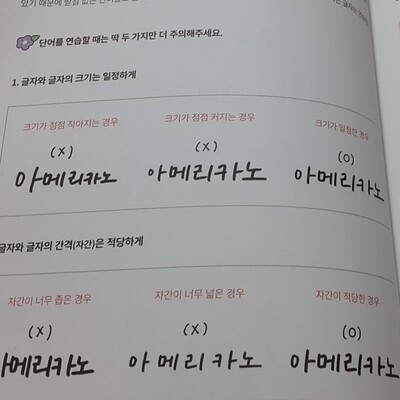 았기 때문에 받침 없는
단어를 연습할 때는 딱 두 가지만 더 주의해주세요.
1. 글자와 글자의 크기는 일정하게
크기가 점점 작아지는 경우 크기가 점점 커지는 경우 크기가 일정한 경우
(X) (X) (O)
아메리카노 아메리카노 아메리카노
글자와 글자의 간격(자간)은 적당하게
자간이 너무 좁은 경우 자간이 너무 넓은 경우 자간이 적당한 경우
(X) (X) (O)
아메리카노 아메리카노 아메리카노